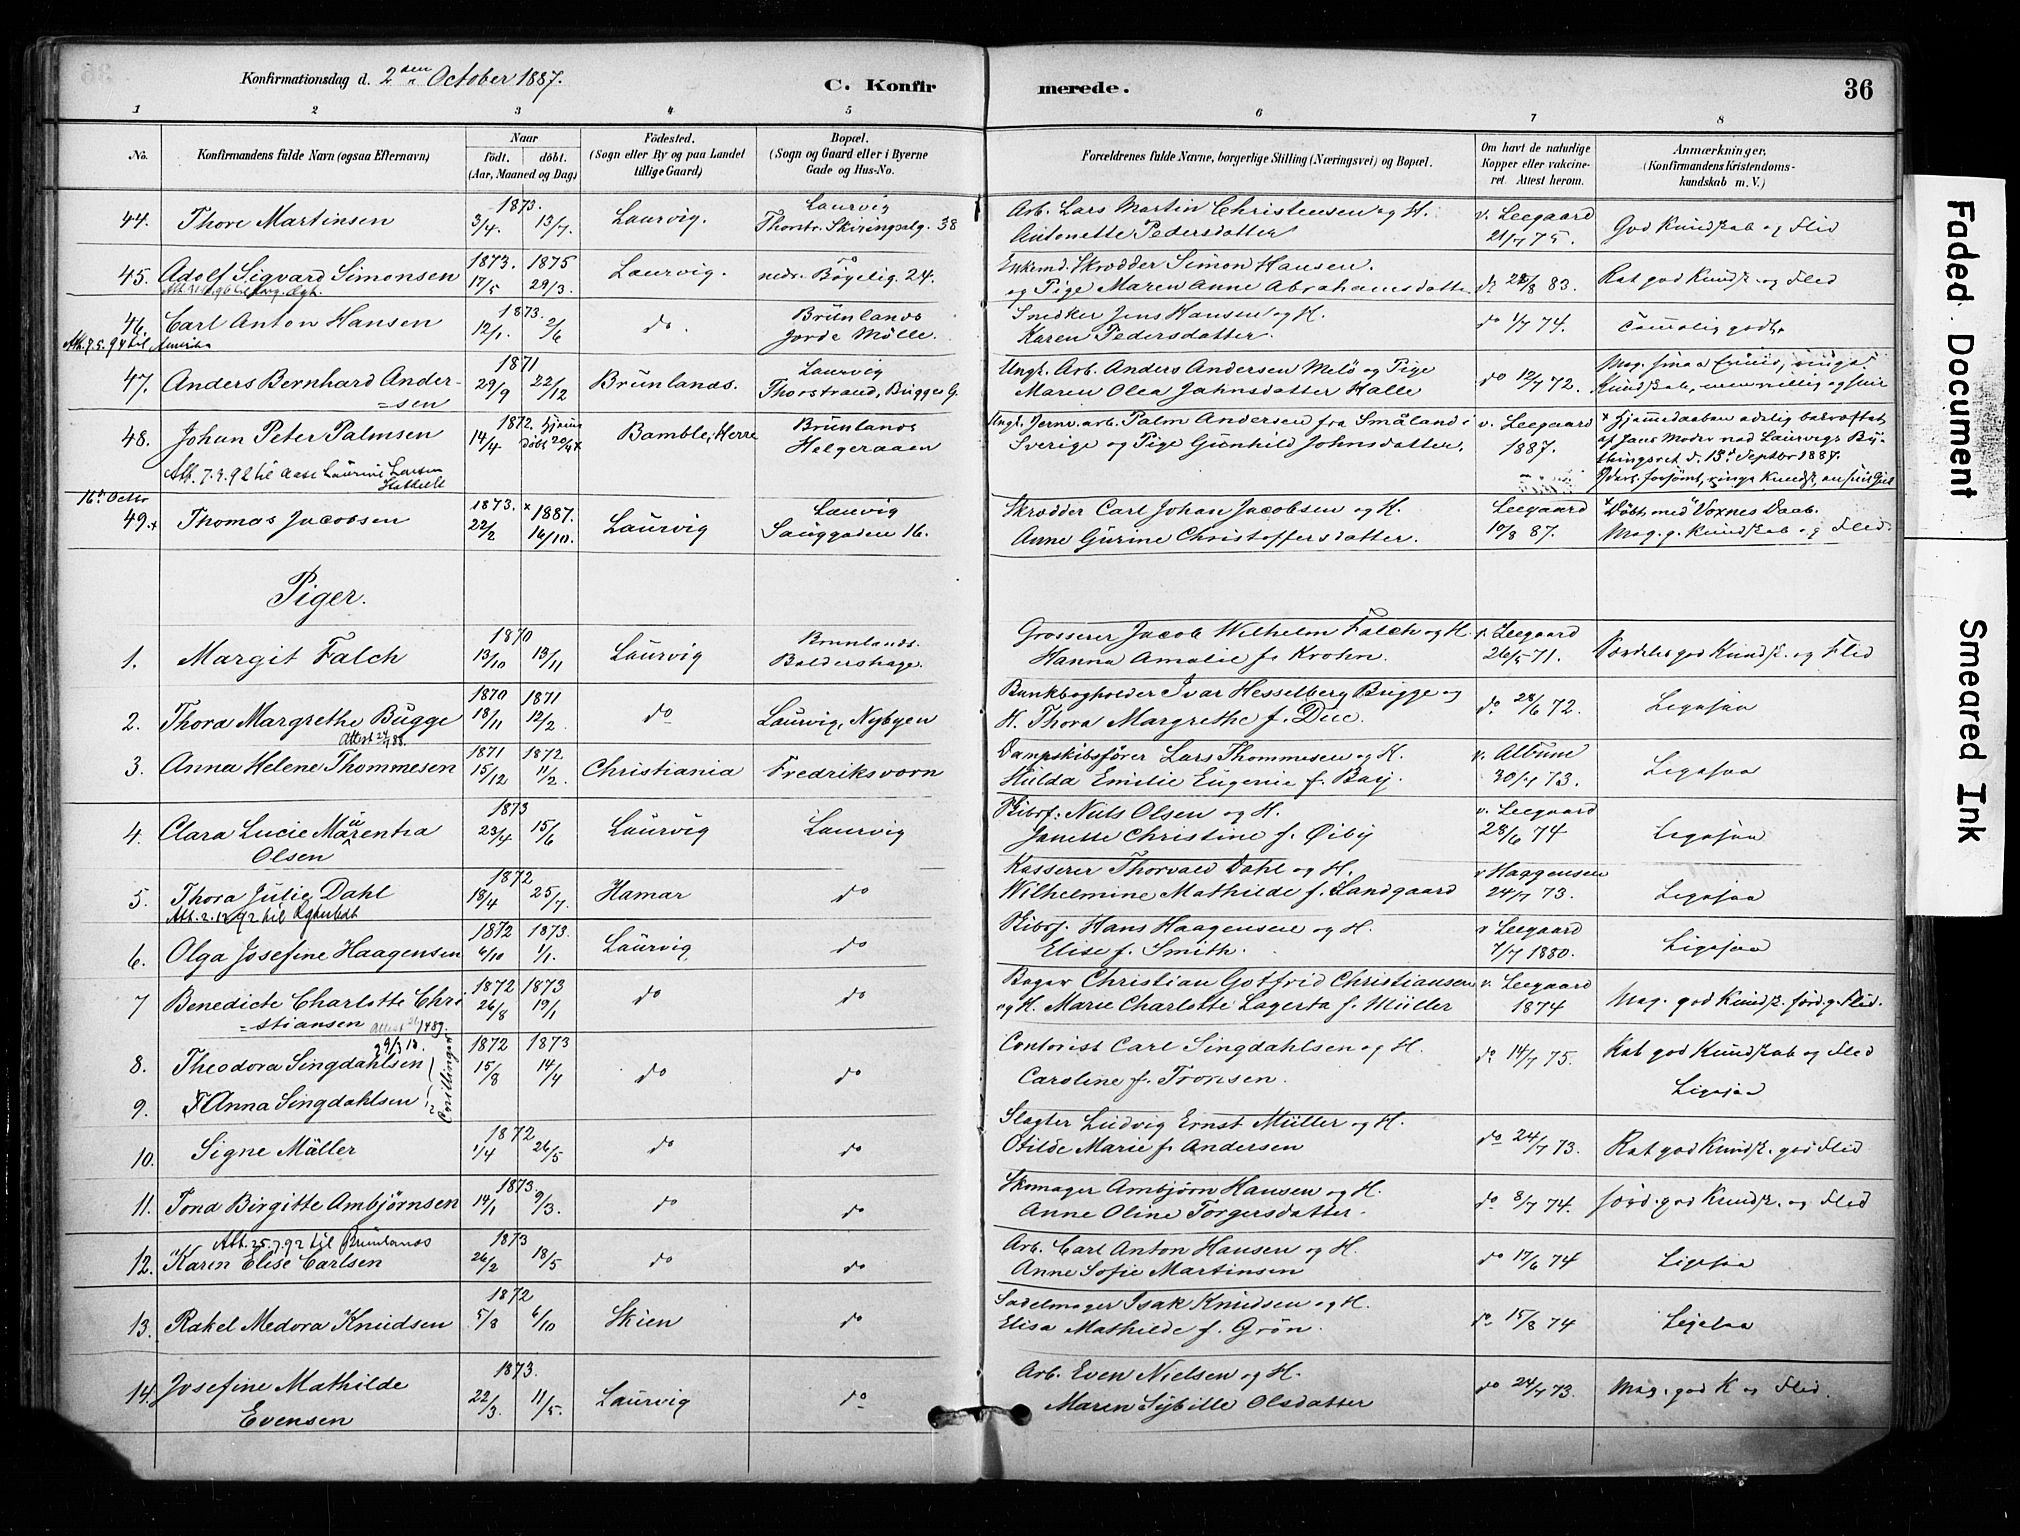 Konfirmationsdag d. 2den October 1887.
C. Konfirmerede.
36
1 2 3 4 5 6 7 8
No. Konfirmandens fulde Navn (ogsaa Efternavn) Naar født. døbt. (Aar, Maaned og Dag) Fødested. (Sogn eller By og paa Landet tillige Gaard) Bopæl. (Sogn og Gaard eller i Byerne Gade og Hus-No. Forældrenes fulde Navne, borgerlige Stilling (Næringsvei) og Bopæl. Om havt de naturlige Kopper eller vakcineret. Attest herom. Anmærkninger. (Konfirmandens Kristendomskundskab m. V.)
44. Thore Martinsen 1873. 3/4. 13/7. Laurvig. Laurvig Thorstr. Skiringsalg. 38 Arb. Lars Martin Christensen og H. Antonette Pedersdatter v. Leegaard 21/7 75. God Kundskab og Flid
45. Adolf Sigvard Simonsen 1873. 17/5 1875 29/3. Laurvig. do nedr. Bøgelig. 24. Enkemd. Skrædder Simon Hansen. og Pige Maren Anne Abrahamsdatter do 28/8 83. Rat god Kundsk. og Flid
46. Carl Anton Hansen 1873. 12/1. 2/6 do. Brunlanes Jorde Mølle. Snedker Jens Hansen og H. Karen Pedersdatter. do 1/7 74.
Att. 7.5.94 til Amerika
47. Anders Bernhard Ander=sen 1871 29/9 22/12 Brunlanes. Laurvig Thorstrand, Brygger G. Ungk. Arb. Anders Andersen Melø og Pige Maren Olea Jahnsdatter Halle do 12/7 72.
48. Johan Peter Palmsen 1872. 14/4 hjemmedøbt 20/4 x Bamble, Herre Brunlanes Helgeraaen Ungk. Jernv. arb. Palm Andersen fra Småland i Sverige og Pige Gunhild Johnsdatter. v. Leegaard 1887. x Hjemmedaaben edelig bekræftet af hans Moder ved Laurvigs Bythingsret d. 15. Septbr 1887.
Att. 7.3.92 til
16d Octbr
49.x Thomas Jacobsen 1873. 22/2 x 1887. 16/10. Laurvig Laurvig Sauggaden 16. Skrædder Carl Johan Jacobsen og H. Anne Gurine Christoffersdatter. Leegaard 12/8 87. x Døbt med Voxnes Daab. Mag. g. Kundskab og Flid.
Piger.
1. Margit Falch 1870 13/10 13/11 Laurvig Brunlanes. Baldershage. Grosserer Jacob Wilhelm Falch og H. Hanna Amalie f. Krohn. v. Leegaard 26/5 71. Særdeles god Kundsk. og Flid
2. Thora Margrethe Bugge 1870 18/11 1871 12/2. do Laurvig, Nybyen Bankbogholder Ivar Hesselberg Bugge og H. Thora Margrethe f. Due. do 28/6 72. Ligesaa
Attest 24/7 88.
3. Anna Helene Thommesen 1871 15/12 1872 11/2. Christiania Fredriksvorn Dampskibsfører Lars Thommesen og H. Hulda Emilie Eugenie f. Bay. v. Album 30/7 73. Ligesaa
4. Clara Lucie Maurentia Olsen 1873 23/4 15/6 Laurvig Laurvig Skibsf. Niels Olsen og H. Janette Christine f. Øiby v. Leegaard 28/6 74 Ligesaa
5. Thora Julie Dahl 1872 18/4 25/7. Hamar do Kasserer Thorvald Dahl og H. Wilhelmine Mathilde f. Landgaard v Haggensen 24/7 73. Ligesaa
Att. 2.12.92 til
6. Olga Josefine Haagensen 1872 6/10 1873. 1/1. Laurvig do Skibsf. Hans Haagensen og H. Elise f. Smith. v Leegaard 7/7 1880. Ligesaa
7 Benedicte Charlotte Chri=stiansen 1872 26/8 1873 19/1 do do Bager Christian Gotfrid Christiansen og H. Marie Charlotte Lagerta f. Müller v. Leegaard 1874 Mag. god Kundsk. førd. g. Flid.
8. Theodora Singdahlsen 1872 15/8 1873 14/4 do do Contorist Carl Singdahlsen og H. Caroline f. Tronsen. do 14/7 75. Rat god Kundskab og Flid
9. Anna Singdahlsen Tvillinger Ligesaa
10. Signe Müller 1872 1/4 26/5 do do Slagter Ludvig Ernst Müller og H. Otilde Marie f. Andersen do 24/7 73. Rat god Kundsk. god Flid
11. Tona Birgitte Ambjørnsen 1873. 14/1 9/3. do do Skomager Ambjørn Hansen og H. Anne Oline Torgersdatter. do 8/7 74. førd. god Kundsk. og Flid
Att. 25.7.92 til Brunlanes
12. Karen Elise Carlsen 1873 26/2 18/5 do do Arb. Carl Anton Hansen og H. Anne Sofie Martinsen do 17/6 74 Ligesaa
13. Rakel Medora Knudsen 1872 5/8 6/10 Skien do Sadelmager Isak Knudsen og H. Elisa Mathilde f. Grøn. do 15/8 74 Ligesaa
14. Josefine Mathilde Evensen 1873. 22/3. 11/5. Laurvig do Arb. Even Nielsen og H. Maren Sybille Olsdatter do 24/7 73. Mag. god K og Flid.
Faded Document
Smeared Ink